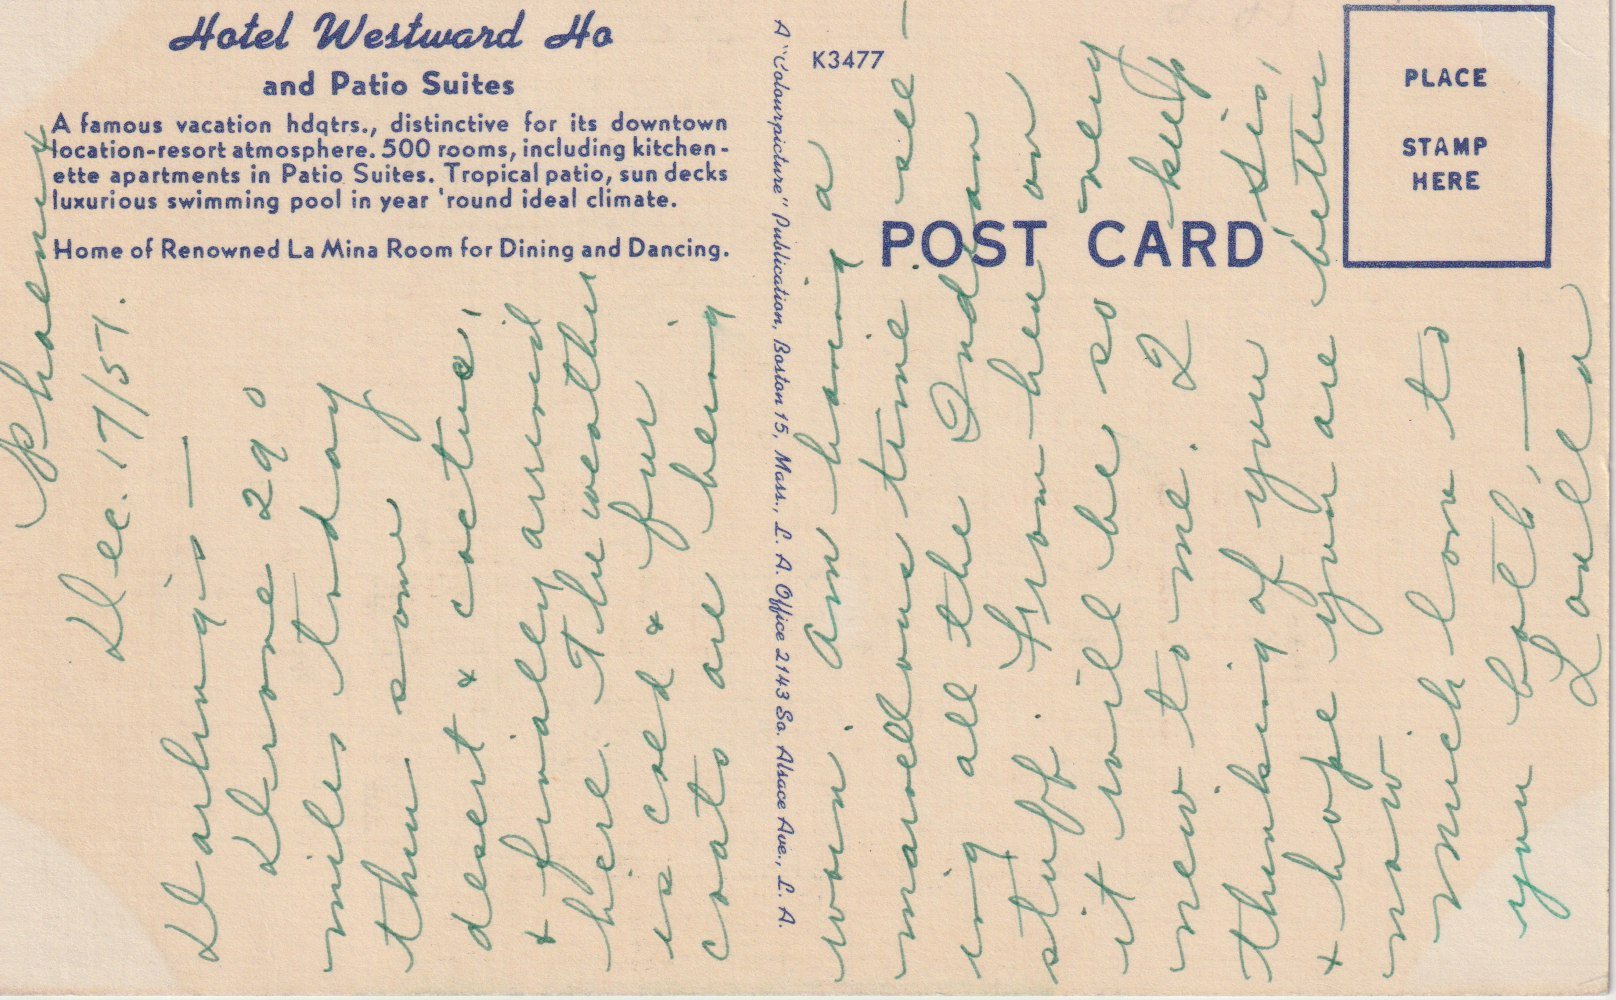 Hotel Westward Ho
and Patio Suites
A famous vacation hdqtrs., distinctive for its downtown
location-resort atmosphere. 500 rooms, including kitchen-
ette apartments in Patio Suites. Tropical patio, sun decks
luxurious swimming pool in year 'round ideal climate.
Home of Renowned La Mina Room for Dining and Dancing.
A "Colourpicture" Publication, Boston 15, Mass., L. A. Office 2143 So. Alsace Ave., L. A.
K3477
POST CARD
PLACE
STAMP
HERE
Phoenix
Dec. 17/57.
Darlings —
Drove 290
miles today
thru some
desert & cactus,
& finally arrived
here. The weather
is cold & fur
coats are being
worn. Am having a
marvellous time see-
ing all the Indian
stuff. From here on
it will be so very
new to me. I keep
thinking of you Sis,
& hope you are better
now
Much love to
you both, —
Loella